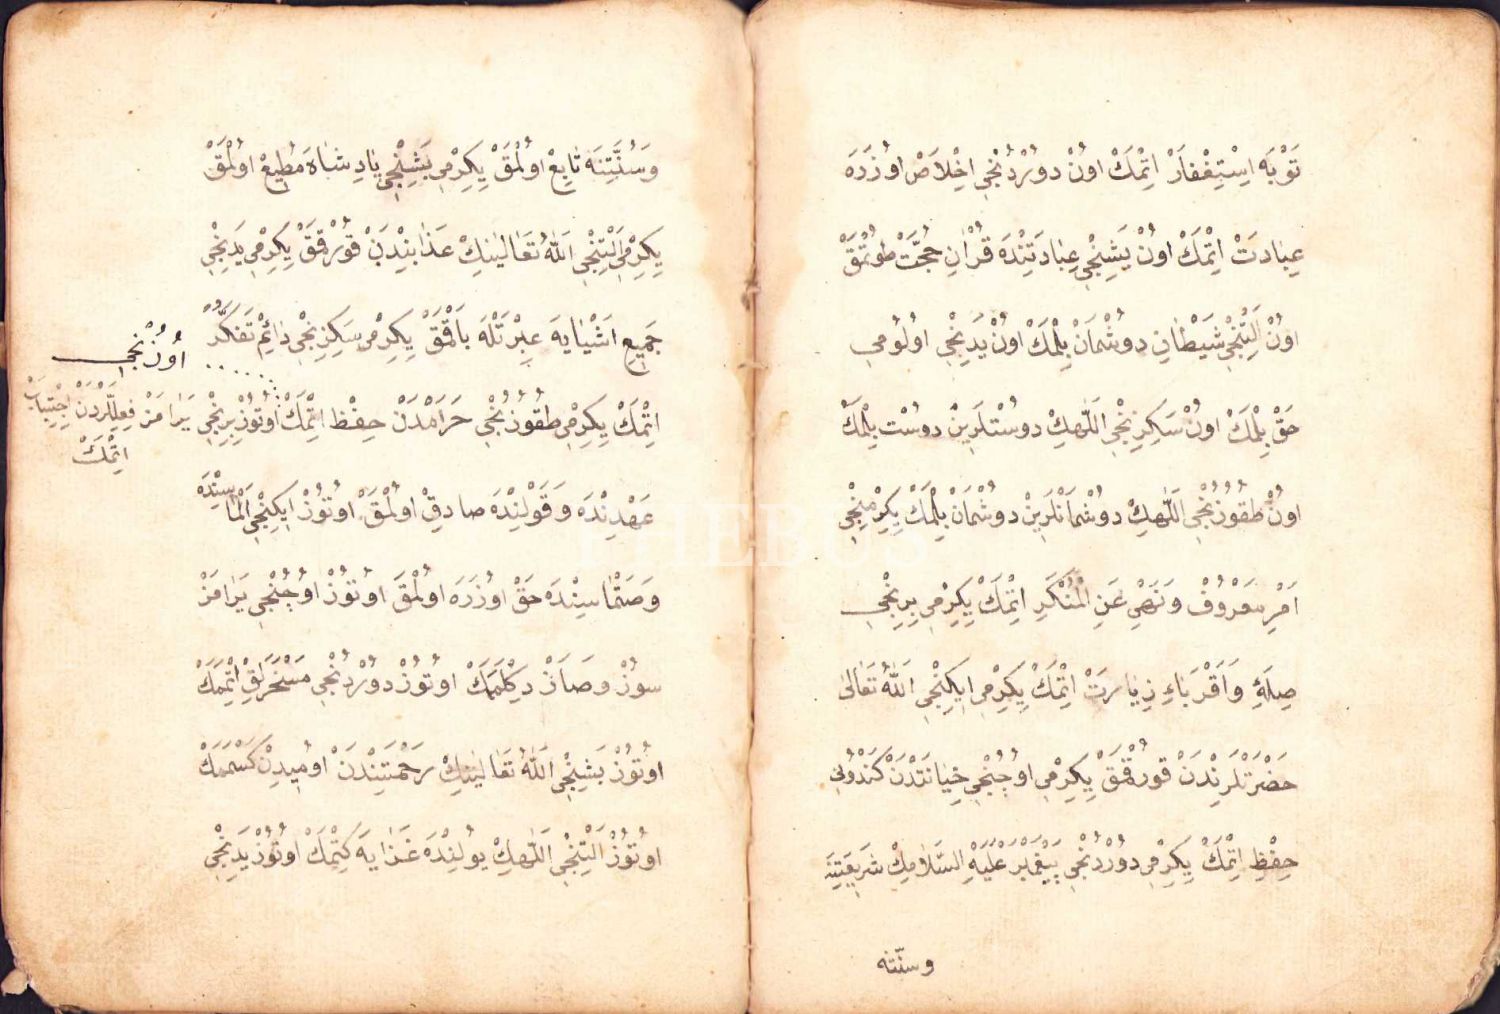 تَوْبَه اِسْتِغْفَارْ اِتِمْكْ اوُنْ دوُرْدُنْجِي اِخْلَاصْ اوُزَرَه
عِبَادَتْ اِتِمْكْ اوُنْ بَشِنْجِي عِبَادَتِنْدَه قُرْاٰنِ حُجَّتْ طوُتْمَقْ
اوُنْ اَلْتِنْجِي شَيْطَانِ دوُشْمَانْ بِلْمَكْ اوُنْ يَدِنْجِي اوُلُومِي
حَقْ بِلْمَكْ اوُنْ سَكِزِنْجِي اَللّٰهِكْ دوُسْتْلَرِينْ دوُسْت بِلْمَكْ
اوُنْ طُقُوزُنْجِي اَللّٰهِكْ دوُشْمَانْلَرِينْ دوُشْمَانْ بِلْمَكْ يِكِرْمِنْجِي
اَمْرِ مَعْرُوفْ وَنَهْيِ عَنِ الْمُنْكَرِ اِتْمَكْ يِكِرْمِي بِرِنْجِي
صِلَهِٔ وَاَقْرَبَاءِ زِيَارَتْ اِتْمَكْ يِكِرْمِي اِيكِنْجِي اَللّٰهُ تَعَالٰى
حَضْرَتْلَرِنْدَنْ قوُرْقْمَقْ يِكِرْمِي اوُجُنْجِي خِيَانَتْدَنْ كَنْدُونِي
حِفْظِ اِتْمَكْ يِكِرْمِي دوُرْدُنْجِي پَيْغَمْبَرْ عَلَيْهِ السَّلَامِكْ شَرِيعَتِنَه
وسنّتنه
وَسُنَّتِنَه تَابِعْ اوُلْمَقْ يِكِرْمِي بَشِنْجِي پَادِشَاهَ مُطِيعْ اوُلْمَقْ
يِكِرْمِي اَلْتِنْجِي اَللّٰهُ تَعَالٰينِكْ عَذَابِنْدَنْ قوُرْقْمَقْ يِكِرْمِي يَدِنْجِي
جَمِيعِ اَشْيَايَه عِبْرَتْلَه بَاقْمَقْ يِكِرْمِي سَكِزِنْجِي دَائِمْ تَفَكُّرْ
اِتْمَكْ يِكِرْمِي طُقُوزُنْجِي حَرَامْدَنْ حِفْظ اِتْمَكْ اوُتُوزْ بِرِنْجِي
اوُتُزُنْجِي
يَرَامَزْ فِعِلْلَرْدَنْ اِجْتِنَابْ
اِتْمَكْ
عَهْدِنْدَه وَقَوْلِنْدَه صَادِقْ اوُلْمَقْ اوُتُوزْ اِيكِنْجِي اَلْمَاسِنْدَه
وَصَتْمَاسِنْدَه حَقْ اوُزَرَه اوُلْمَقْ اوُتُوزْ اوُجُنْجِي يَرَامَزْ
سوُزْ وصَازْ دِكْلَمَمَكْ اوُتُوزْ دوُرْدُنْجِي مَسْخَرَلِقْ اِتْمَمَكْ
اوُتُوزْ بَشِنْجِي اَللّٰهُ تَعَالٰينِكْ رَحْمَتِنْدَنْ اوُمِيدِنْ كَسْمَمَكْ
اوُتُوزْ اَلْتِنْجِي اَللّٰهِكْ يوُلِنْدَه غَزَايَه كِتْمَكْ اوُتُوزْ يَدِنْجِي